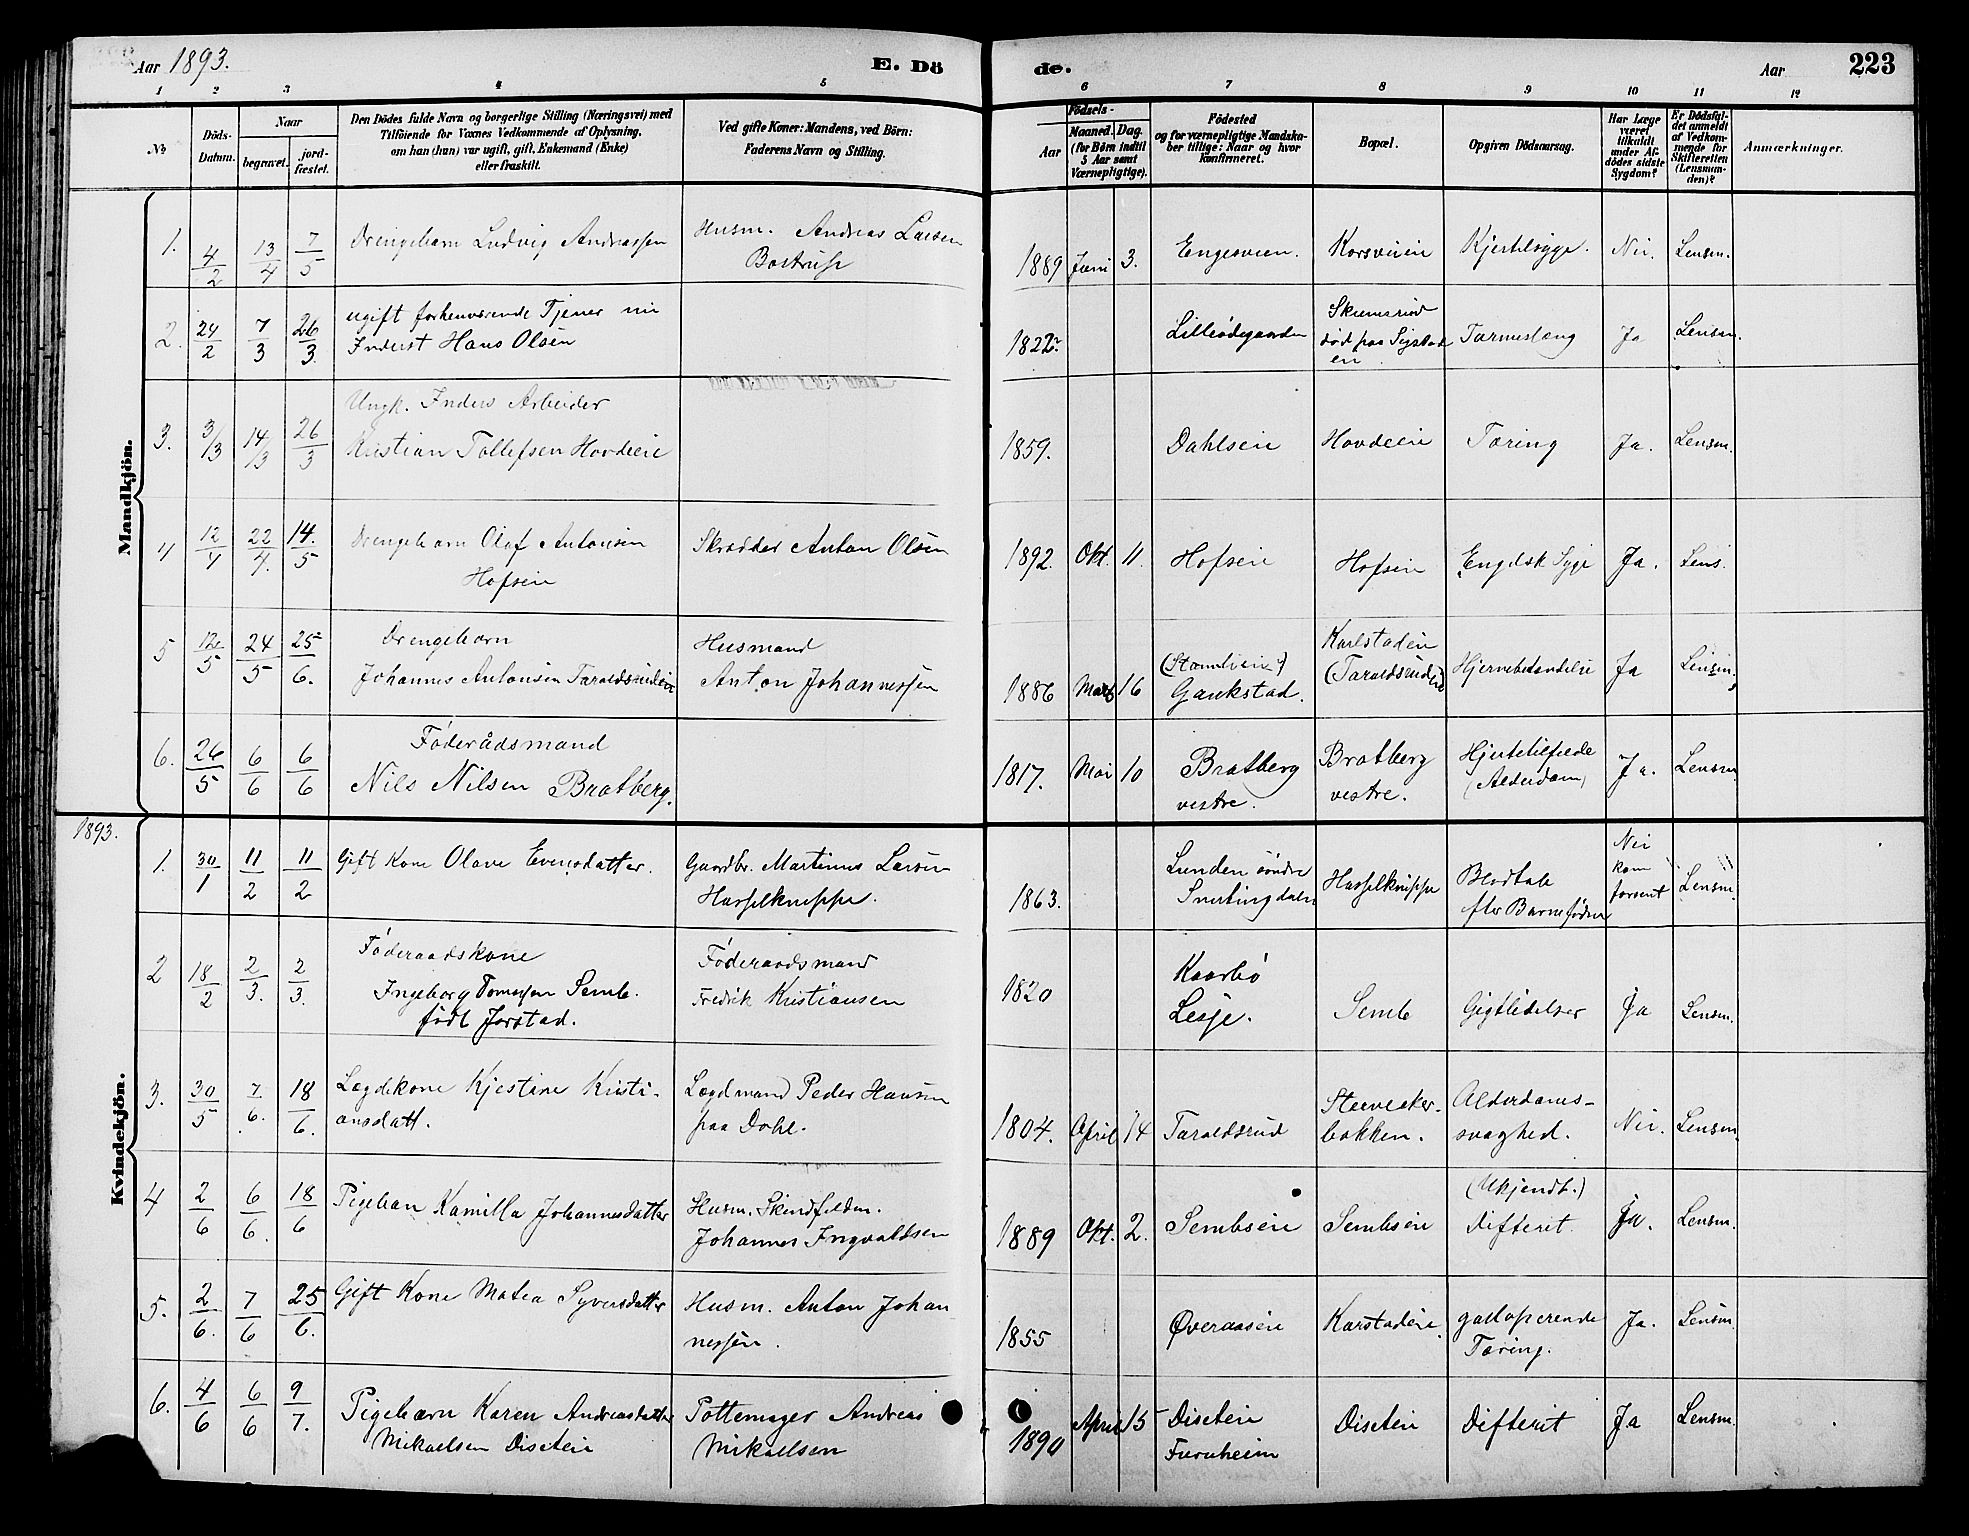 Aar 1893.
E. Dö
de.
Aar
223
1 2 3 4 5 6 7 8 9 10 11 12
No
Döds-Datum.
Naar
begravet.
jord-fæstet.
Den Dödes fulde Navn og borgerlige Stilling (Næringsvei) med
Tilföiende for Voxnes Vedkommende af Oplysning,
om han (hun) var ugift, gift, Enkemand (Enke)
eller fraskilt.
Ved gifte Koner: Mandens, ved Börn:
Faderens Navn og Stilling.
Födsels-
Aar
Maaned. Dag.
(for Börn indtil
5 Aar samt
Værnepligtige).
Födested
og for værnepligtige Mandska-
ber tillige: Naar og hvor
konfirmeret.
Bopæl.
Opgiven Dödsaarsag.
Har Læge
været
tilkaldt
under Af-
dödes sidste
Sygdom?
Er Dödsfal-
det anmeldt
af Vedkom-
mende for
Skifteretten
(Lensman-
den)?
Anmærkninger.
Mandkjön.
1. 4/2 13/4 7/5 Drengebarn Ludvig Andreassen
Husm. Andreas Larsen
Bostrup
1889 Juni 3. Engesveen. Korsveien Kjertelsyge. Nei. Lensm.
2. 24/2 7/3 26/3 ugift forhenværende Tjener nu
Inderst Hans Olsen
1822 Lilleödegaarden
död paa Sygstad
en
Tarmeslang Ja Lensm.
3. 3/3 14/3 26/3 Ungk. Inders Arbeider
Kristian Tollefsen Hovdeeie
1859. Dahlseie Hovdeeie Tæring Ja. Lensm.
4 12/4 22/4. 14./5 Drengebarn Olaf Antonsen
Hofseie
Skrædder Anton Olsen
1892. Okt. 11. Hofseie Hofseie Engelsk Syge Ja. Lens.
5 12/5 24/5 25/6. Drengebarn
Johannes Antonsen Taraldsrudeie
Husmand
Anton Johannessen
1886 Marts 16
Gaukstad.
Karlstadeie
(Taraldsrudeie)
Hjernebetændelse Ja Lensm.
6. 26/5 6/6 6/6 Föderådsmand
Nils Nilsen Bratberg.
1817. Mai 10 Bratberg
vestre.
Bratberg
vestre.
Hjertelifrede
(Alderdom)
Ja. Lensm
1893.
Kvindekjön.
1. 30/1 11/2 11/2 Gift Kone Olave Evensdatter.
Gaardbr. Martinus Larsen
Hasselknippe.
1863. Lunden söndre
Snertingdalen
Hasselknippe
Blodtab
efter Barnefödsen
Nei
kom
forsent
Lensm.
2 18/2 2/3. 2/3. Föderaadskone
Ingeborg Tomesen Semb.
födt Jorstad.
Föderaadsmand
Fredrik Kristiansen
1820 Kaarbö
Lesje.
Semb Gigtlidelser Ja Lensm.
3. 30/5 7/6. 18/6. Lægdekone Kjestine Kristi-
ansdatt.
Lægdmand Peder Hansen
paa Dahl.
1804. April 14 Taraldsrud
bakken.
Alderdoms-
svaghed.
Nei. Lensm.
4 2/6 6/6. 18/6 Pigebarn Kamilla Johannesdatter
Husm. Skindfelden.
Johannes Ingvaldsen
1889 Okt. 2. Sembseie Sembseie
(Ukjendt.)
Difterit
Ja. Lensm.
5. 2/6. 7/6 25/6. Gift Kone Matea Syversdatter
Husm. Anton Johan
nessen.
1855 Øveraaseie Karstadeie. galloperende
Tæring.
Ja. Lensm.
6. 4/6 6/6 9/7. Pigebarn Karen Andreasdatter
Mikaelsen Diseteie
Pottemager Andreas
Mikaelsen
1890 April 15 Diseteie
Furuheim
Diseteie Difterit Ja Lensm.